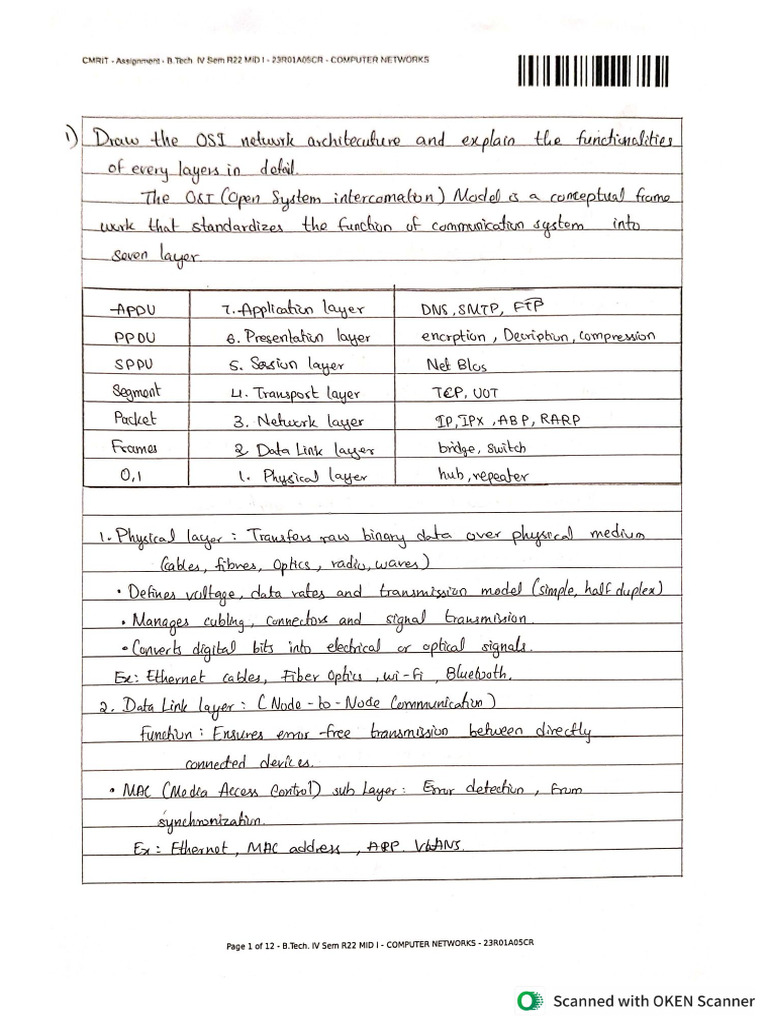 CMRIT - Assignment - B.Tech IV Sem R22 MID I - 23R01A05CR - COMPUTER NETWORKS
1) Draw the OSI network architecuture and explain the functionalities
of every layers in detail.
The OSI (Open System intercomation) Model is a conceptual frame
work that standardizes the function of communication system into
seven layer
APDU 7. Application layer DNS, SMTP, FTP
PPDU 6. Presentation layer encrption, Decription, compression
SPPU 5. Session layer Net Blos
Segment 4. Transport layer TCP, UOT
Packet 3. Network layer IP, IPX, ABP, RARP
Frames 2 Data Link layer bridge, switch
0,1 1. Physical layer hub, repeater
1. Physical layer : Transfers raw binary data over physical medium
(cables, fibres, optics, radio, waves)
• Defines voltage, data rates and transmission model (simple, half duplex)
• Manages cubling, connectors and signal transmission.
• Converts digital bits into electrical or optical signals.
Ex: Ethernet cables, Fiber Optics, wi-fi, Bluetooth.
2. Data Link layer : (Node-to-Node Communication)
Function : Ensures error-free transmission between directly
connected devices.
• MAC (Media Access Control) sub Layer: Error detection, From
synchronization.
Ex: Ethernet, MAC address, ARP. VLANS.
Page 1 of 12 - B.Tech. IV Sem R22 MID I - COMPUTER NETWORKS - 23R01A05CR
Scanned with OKEN Scanner